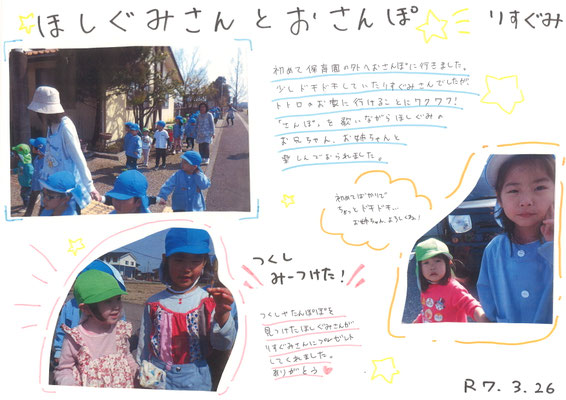 ほしぐみさんとおさんぽ
りすぐみ
初めて保育園の外へおさんぽに行きました。
少しドキドキしていたりすぐみさんでしたが、
トトロのお家に行けることにワクワク!
「さんぽ」を歌いながらほしぐみの
お兄ちゃん、お姉ちゃんと
楽しんでおられました。
初めてぼやりで
ちょっとドキドキ…
お姉ちゃん、よろしくね!
つくし
みーつけた!
つくしやたんぽぽを
見つけたほしぐみさんが
りすぐみさんにプレゼント
してくれました。
ありがとう
R7.3.26